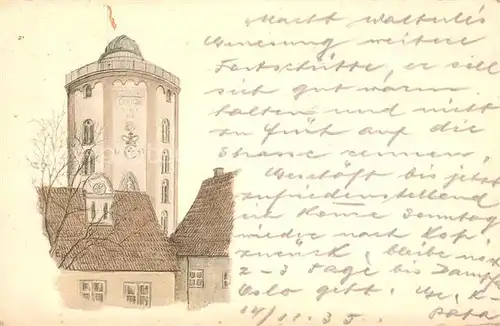 Macht Walterles
Genesung weitere
Fortschritte, er soll
sich gut warm
halten und nicht
zu früh auf die
Strasse rennen.
Geschäft bis jetzt
zufriedenstellend
ich komme Sonntag
wieder nach Kop.
zurück, bleibe noch
2-3 Tage bis Dampfer
Oslo geht.
Papa
14/11.35.